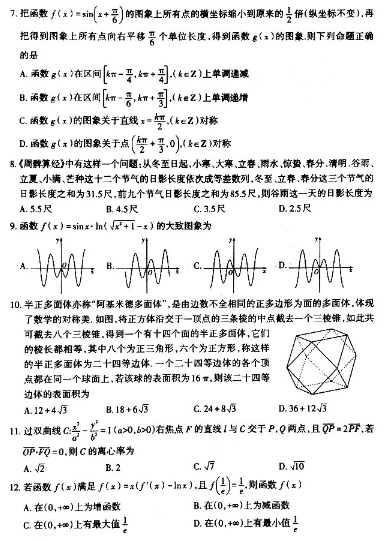 7.把函数 f(x)=sin(x+π/6)的图象上所有点的横坐标缩小到原来的1/2倍(纵坐标不变),再
把得到图象上所有点向右平移π/6个单位长度,得到函数 g(x)的图象.则下列命题正确
的是
A. 函数 g(x)在区间[kπ-π/4,kπ+π/4],(k∈Z)上单调递减
B. 函数 g(x)在区间[kπ-π/6,kπ+π/3],(k∈Z)上单调递增
C. 函数 g(x)的图象关于直线 x=kπ/2,(k∈Z)对称
D. 函数 g(x)的图象关于点(kπ/2+π/3,0),(k∈Z)对称
8.《周髀算经》中有这样一个问题:从冬至日起,小寒、大寒、立春、雨水、惊蛰、春分、清明、谷雨、
立夏、小满、芒种这十二个节气的日影长度依次成等差数列,冬至、立春、春分这三个节气的
日影长度之和为31.5尺,前九个节气日影长度之和为85.5尺,则谷雨这一天的日影长度为
A. 5.5尺 B. 4.5尺 C. 3.5尺 D. 2.5尺
9. 函数 f(x)=sinx·ln(√(x²+1)-x)的大致图象为
A. B. C. D.
10. 半正多面体亦称“阿基米德多面体”,是由边数不全相同的正多边形为面的多面体,体现
了数学的对称美.如图,将正方体沿交于一顶点的三条棱的中点截去一个三棱锥,如此共
可截去八个三棱锥,得到一个有十四个面的半正多面体,它们
的棱长都相等,其中八个为正三角形,六个为正方形,称这样
的半正多面体为二十四等边体.一个二十四等边体的各个顶
点都在同一个球面上,若该球的表面积为16π,则该二十四等
边体的表面积为
A. 12+4√3 B. 18+6√3 C. 24+8√3 D. 36+12√3
11. 过双曲线 C:x²/a²-y²/b²=1(a>0,b>0)右焦点 F 的直线 l 与 C 交于 P,Q 两点,且QP=2PF,若
OP·FQ=0,则 C 的离心率为
A. √2 B. 2 C. √7 D. √10
12. 若函数 f(x)满足 f(x)=x(f′(x)-lnx),且 f(1/e)=1/e,则函数 f(x)
A. 在(0,+∞)上为增函数 B. 在(0,+∞)上为减函数
C. 在(0,+∞)上有最大值1/e D. 在(0,+∞)上有最小值1/e